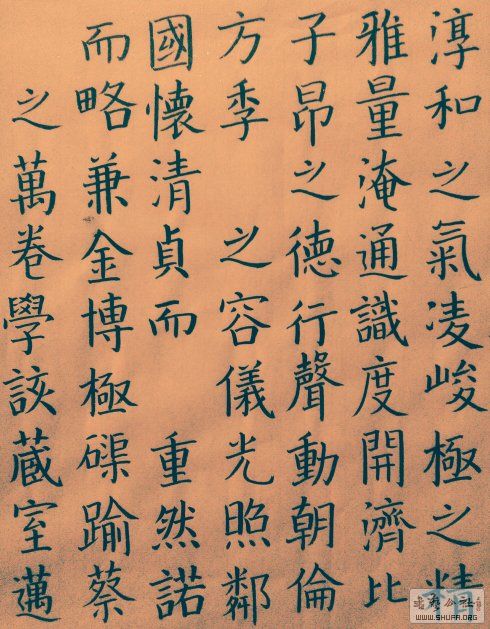 淳和之氣凌峻極之精
雅量淹通識度開濟比
子昂之德行聲動朝倫
方季 之容儀光照鄰
國懷清貞而 重然諾
而略兼金博極磲踰蔡
之萬卷學該蔵室邁
书法公社
WWW.SHUFA.ORG